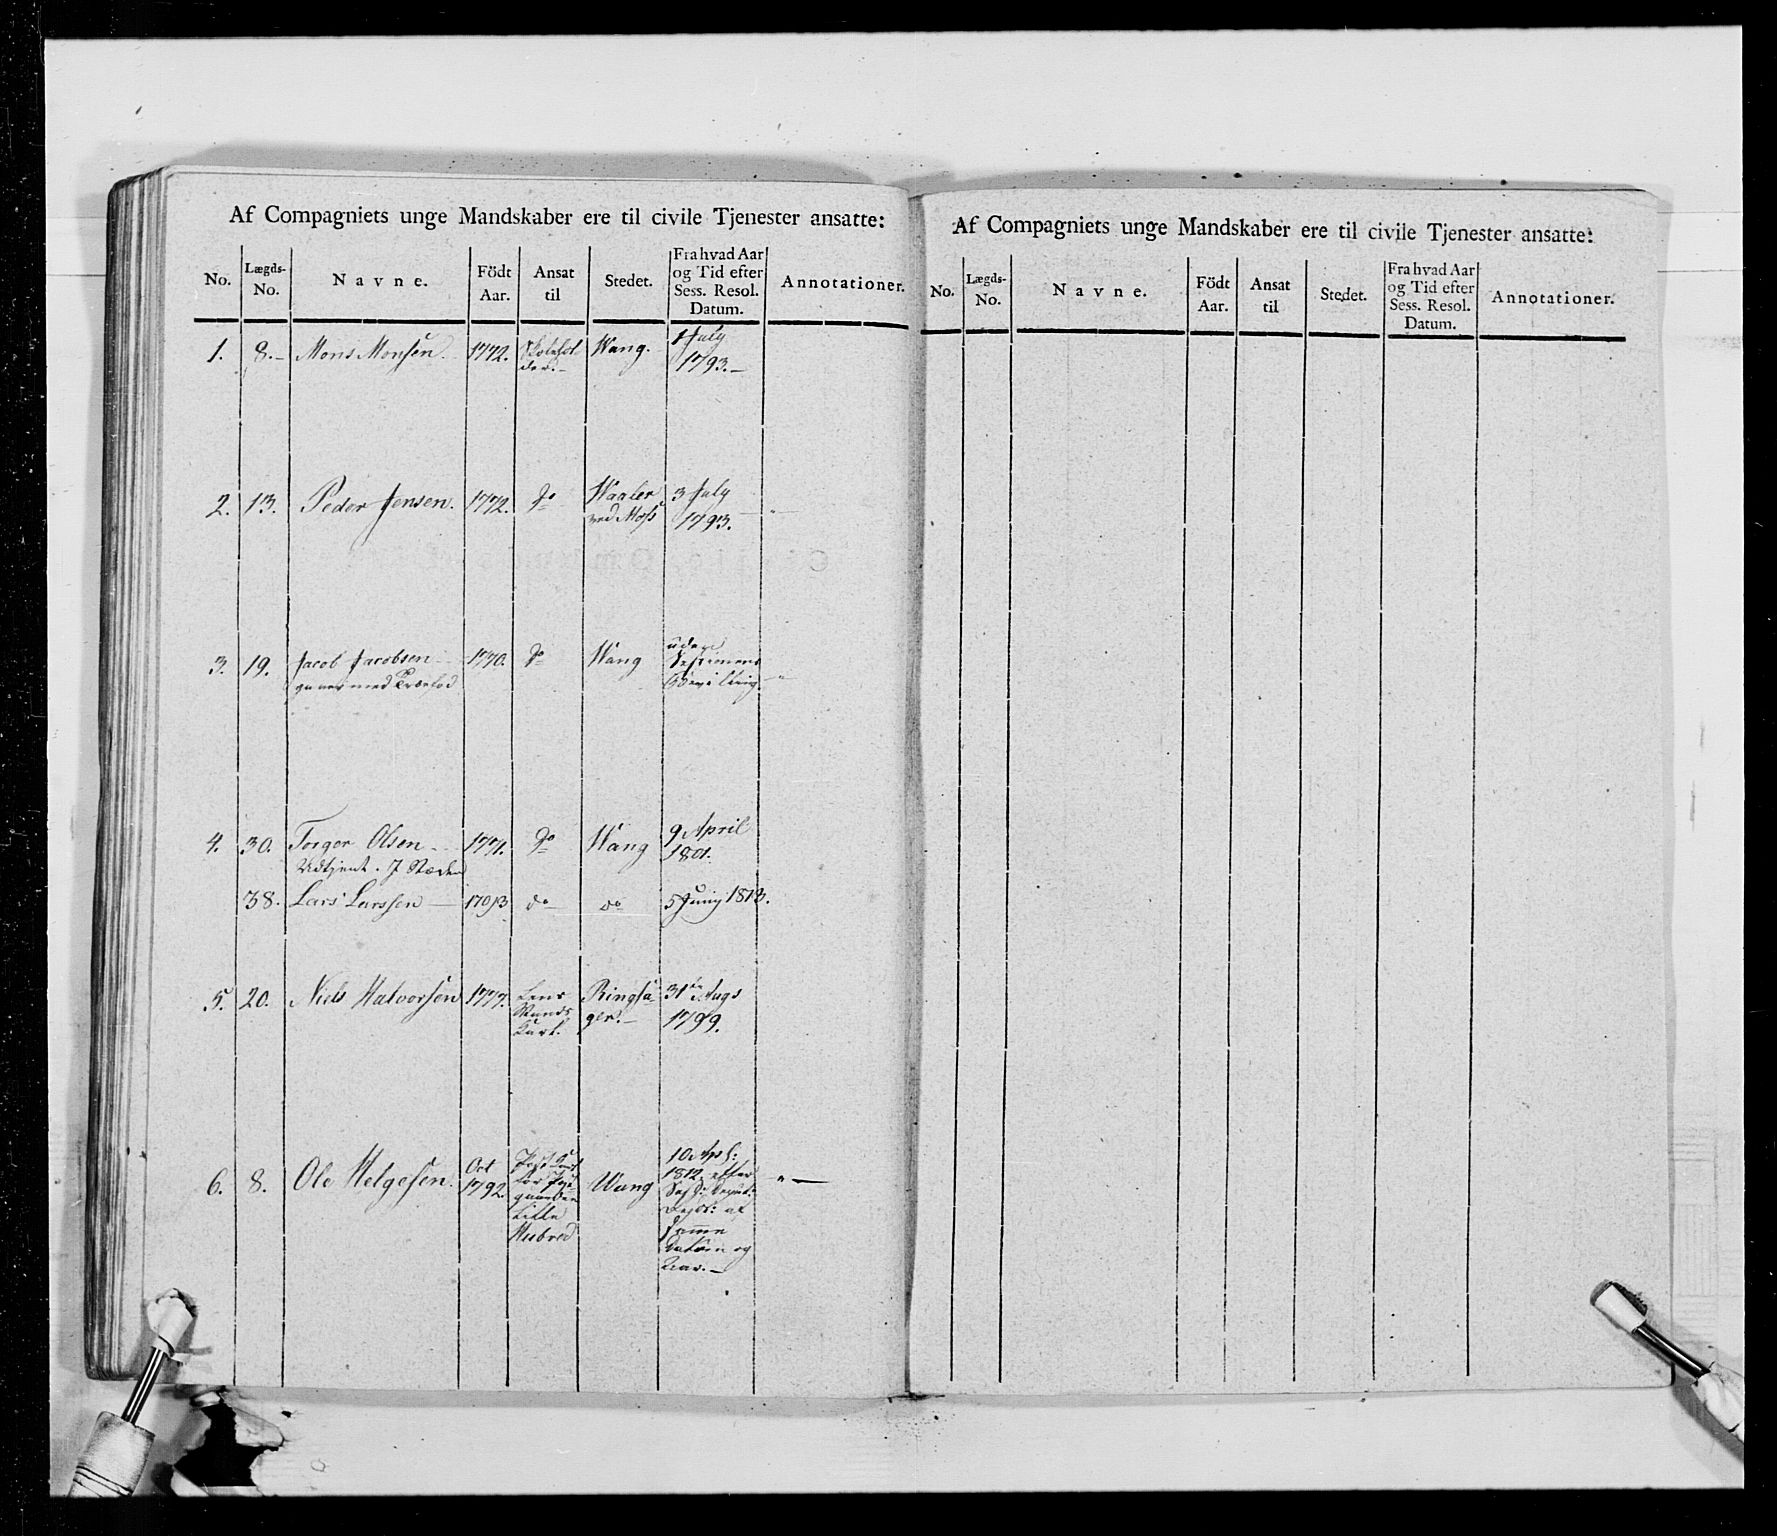 Af Compagniets unge Mandskaber ere til civile Tjenester ansatte:
No. Lægds-No. Navne. Födt Aar. Ansat til Stedet. Fra hvad Aar og Tid efter Sess. Resol. Datum. Annotationer.
1. 8.- Mons Monsen. 1772. Skolehol- Wang. 1 July
der.- 1793.-
2. 13. Peder Jensen. 1772. do Waaler 3 July
ved Moss 1793. "
3. 19. Jacob Jacobsen 1770. do Wang uden
gaaer med Træefod Sessionens
Bevilling. "
4. 30. Torger Olsen 1771. do Wang 9 April
Udtjent. I Stæden 1801.
38. Lars Larssen 1793 do do 5 Juny 1813.
5. 20. Niels Halvorsen 1777. Lens Ringsa- 31te Augs
Mands ger.- 1799.
Karl.
6. 8. Ole Helgesen. Oct 1792. Wang 10 Apl:
for 1812 efter "
gaarden Sess: Deput:
Lille Resol: af
Hubred samme
Datum og
Aar.-
Af Compagniets unge Mandskaber ere til civile Tjenester ansatte:
No. Lægds-No. Navne. Födt Aar. Ansat til Stedet. Fra hvad Aar og Tid efter Sess. Resol. Datum. Annotationer.